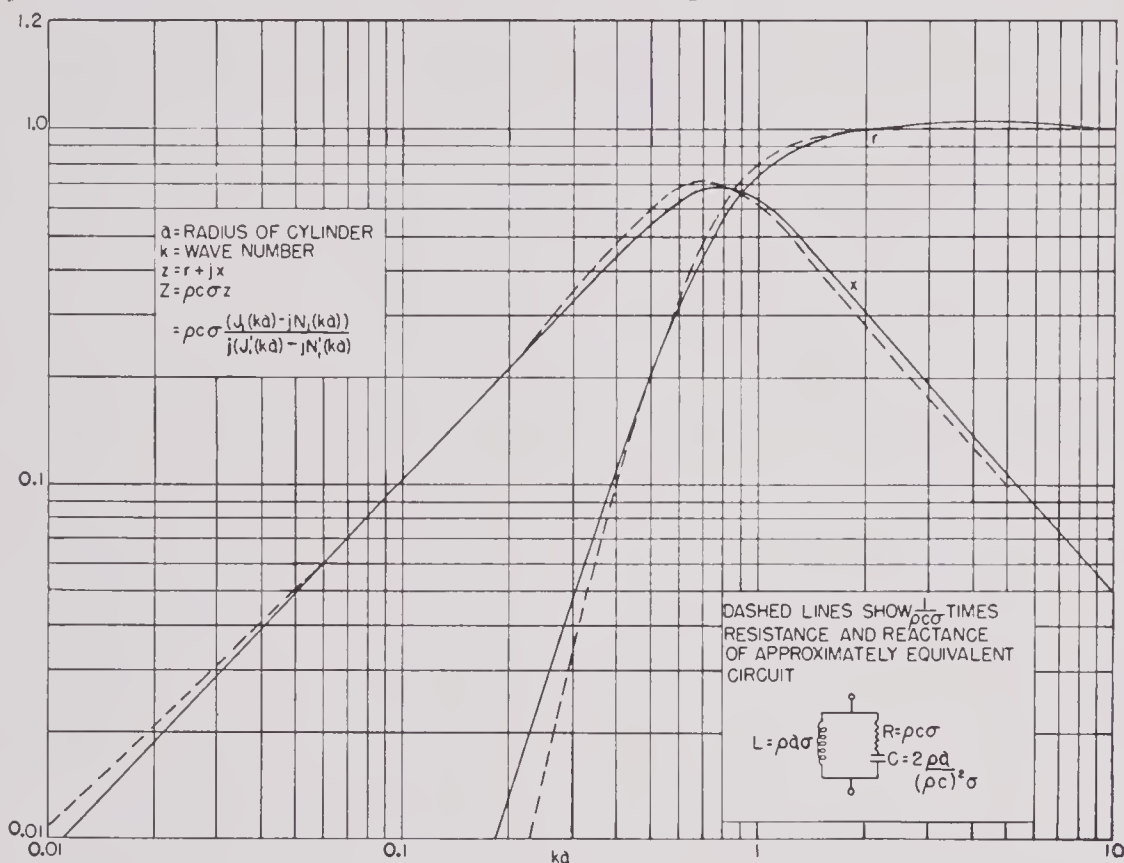 1.2
1.0
r
a = RADIUS OF CYLINDER
k = WAVE NUMBER
z = r + jx
Z = ρcσz
= ρcσ (J₁(ka) - jN₁(ka)) / j(J₁'(ka) - jN₁'(ka)
x
0.1
DASHED LINES SHOW 1/ρcσ TIMES
RESISTANCE AND REACTANCE
OF APPROXIMATELY EQUIVALENT
CIRCUIT
L = ρaσ
R = ρcσ
C = 2 ρa / (ρc)²σ
0.01
0.01
0.1
ka
1
10